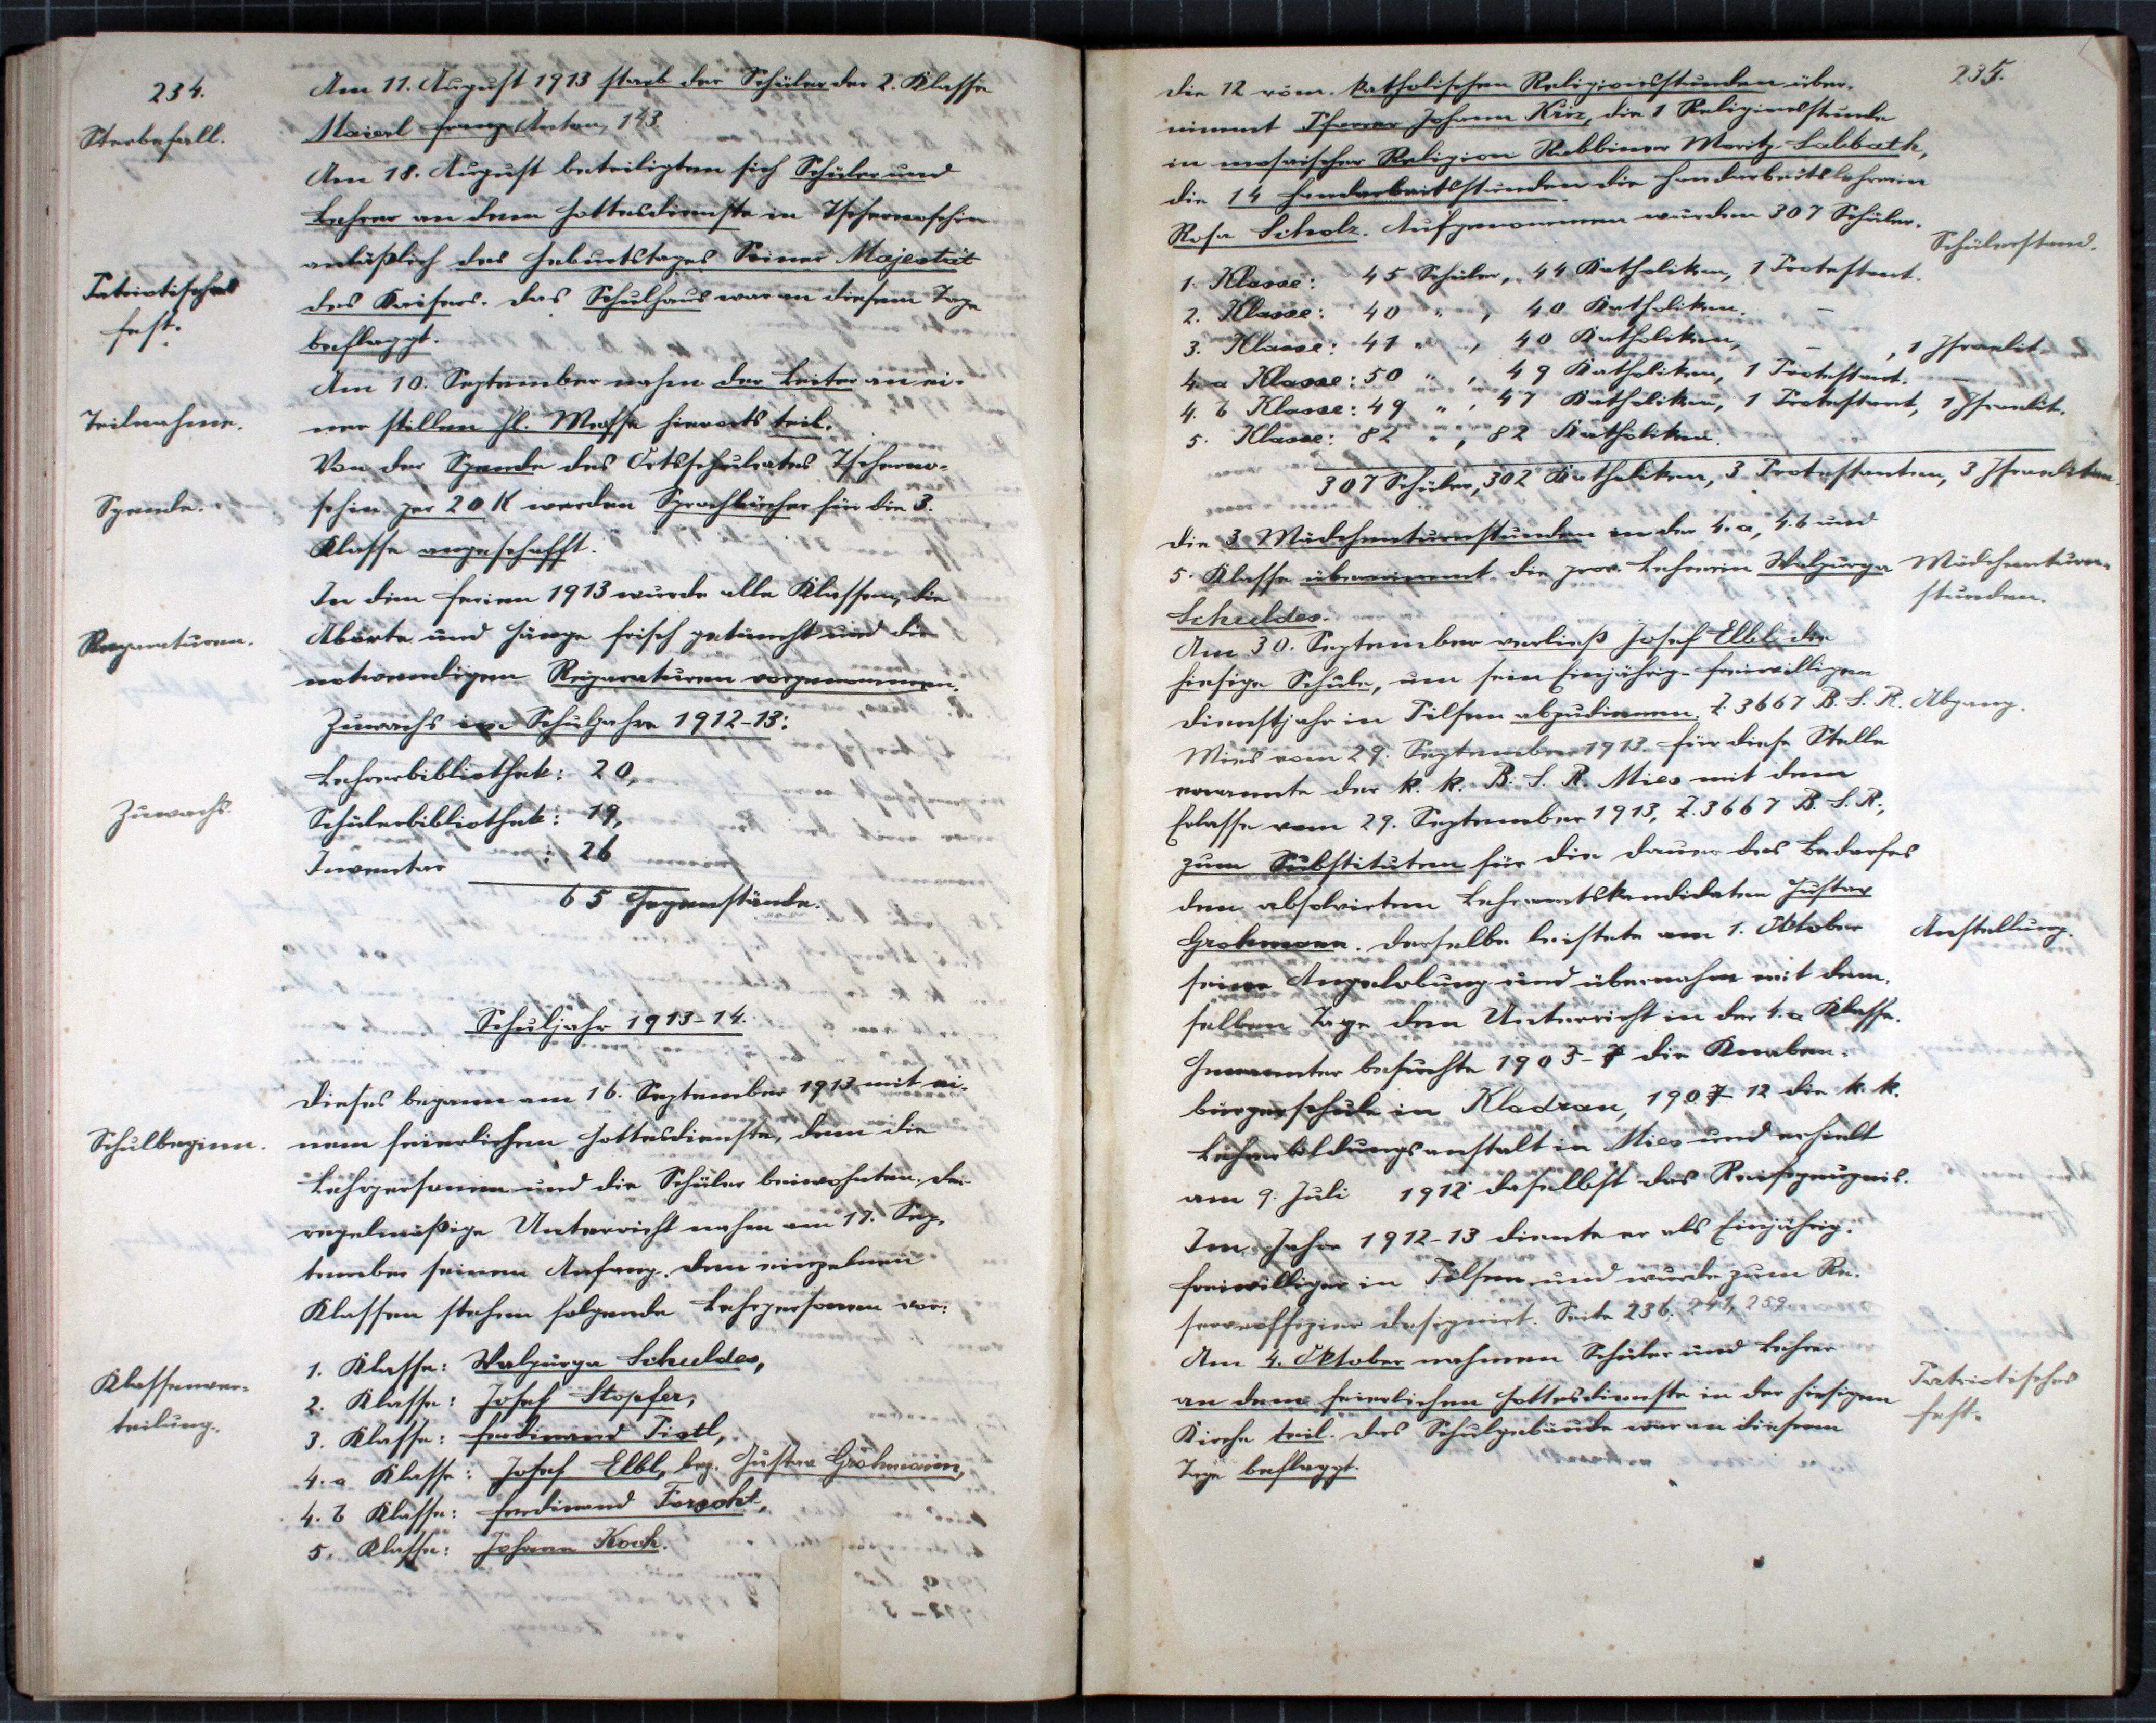 234.
Am 11. August 1913 starb der Schüler der 2. Klasse
Sterbefall.
Maierl Franz Anton, 143.
Am 18. August beteiligten sich Schüler und
Lehrer an dem Gottesdienste in Tschernoschin
anläßlich des Geburtstages Seiner Majestät
Patriotisches
Fest.
des Kaisers. Das Schulhaus war an diesem Tage
beflaggt.
Am 10. September nahm der Leiter an ei-
Teilnahme.
ner stillen hl. Messe hierorts teil.
Von der Spende des Ortsschulrates Tscherno-
Spende.
schin per 20 K werden Sprachbücher für die 3.
Klasse angeschafft.
In den Ferien 1913 wurde alle Klassen, die
Reparaturen.
Aborte und Gänge frisch getüncht und die
notwendigen Reparaturen vorgenommen.
Zuwachs im Schuljahre 1912-13:
Lehrerbibliothek: 20,
Zuwachs.
Schülerbibliothek: 19,
Inventar : 26
65 Gegenstände.
Schuljahr 1913-14.
Dieses begann am 16. September 1913 mit ei-
Schulbeginn.
nem feierlichen Gottesdienste, dem die
Lehrpersonen und die Schüler beiwohnten. Der
regelmäßige Unterricht nahm am 17. Sep-
tember seinen Anfang. Den einzelnen
Klassen stehen folgende Lehrpersonen vor:
Klassenver-
teilung.
1. Klasse: Walpurga Schuldes,
2. Klasse: Josef Stopfer,
3. Klasse: Ferdinand Tistl,
4. a Klasse: Josef Elbl, bez. Gustav Grohmann,
4. b Klasse: Ferdinand Forscht,
5. Klasse: Johann Koch.
235.
Die 12 röm. katholischen Religionsstunden über-
nimmt Pfarrer Johann Kriz, die 1 Religionsstunde
in mosaischer Religion Rabbiner Moritz Labbath,
die 14 Handarbeitsstunden die Handarbeitslehrerin
Rosa Scholz. Aufgenommen wurden 307 Schüler.
Schülerstand.
1. Klasse: 45 Schüler, 44 Katholiken, 1 Protestant.
2. Klasse: 40 " , 40 Katholiken. –
3. Klasse: 41 " , 40 Katholiken, – , 1 Israelit.
4. a Klasse: 50 " , 49 Katholiken, 1 Protestant. –
4. b Klasse: 49 " , 47 Katholiken, 1 Protestant, 1 Israelit.
5. Klasse: 82 " , 82 Katholiken.
307 Schüler, 302 Katholiken, 3 Protestanten, 3 Israeliten.
Die 3 Mädchenturnstunden in der 4. a, 4. b und
5. Klasse übernimmt die prov. Lehrerin Walpurga
Mädchenturn-
stunden.
Schuldes.
Am 30. September verließ Josef Elbl die
hiesige Schule, um sein Einjährig-freiwilligen
Dienstjahr in Pilsen abzudienen. Z. 3667 B. S. R.
Abgang.
Mies vom 29. September 1913. Für diese Stelle
ernannte der k. k. B. S. R. Mies mit dem
Erlasse vom 29. September 1913, Z. 3667 B. S. R.,
zum Substituten für die Dauer des Bedarfes
den absolvierten Lehramtskandidaten Gustav
Grohmann. Derselbe leistete am 1. Oktober
Anstellung.
seine Angelobung und übernahm mit dem-
selben Tage den Unterricht in der 4. a Klasse.
Genannter besuchte 1903-7 die Knaben-
bürgerschule in Kladrau, 1907-12 die k. k.
Lehrerbildungsanstalt in Mies und erhielt
am 9. Juli 1912 daselbst das Reifezeugnis.
Im Jahre 1912-13 diente er als Einjährig-
freiwilliger in Pilsen und wurde zum Re-
serveoffizier designiert. Seite 236, 241, 259
Am 4. Oktober nahmen Schüler und Lehrer
Patriotisches
Fest.
an dem feierlichen Gottesdienste in der hiesigen
Kirche teil. Das Schulgebäude war an diesem
Tage beflaggt.